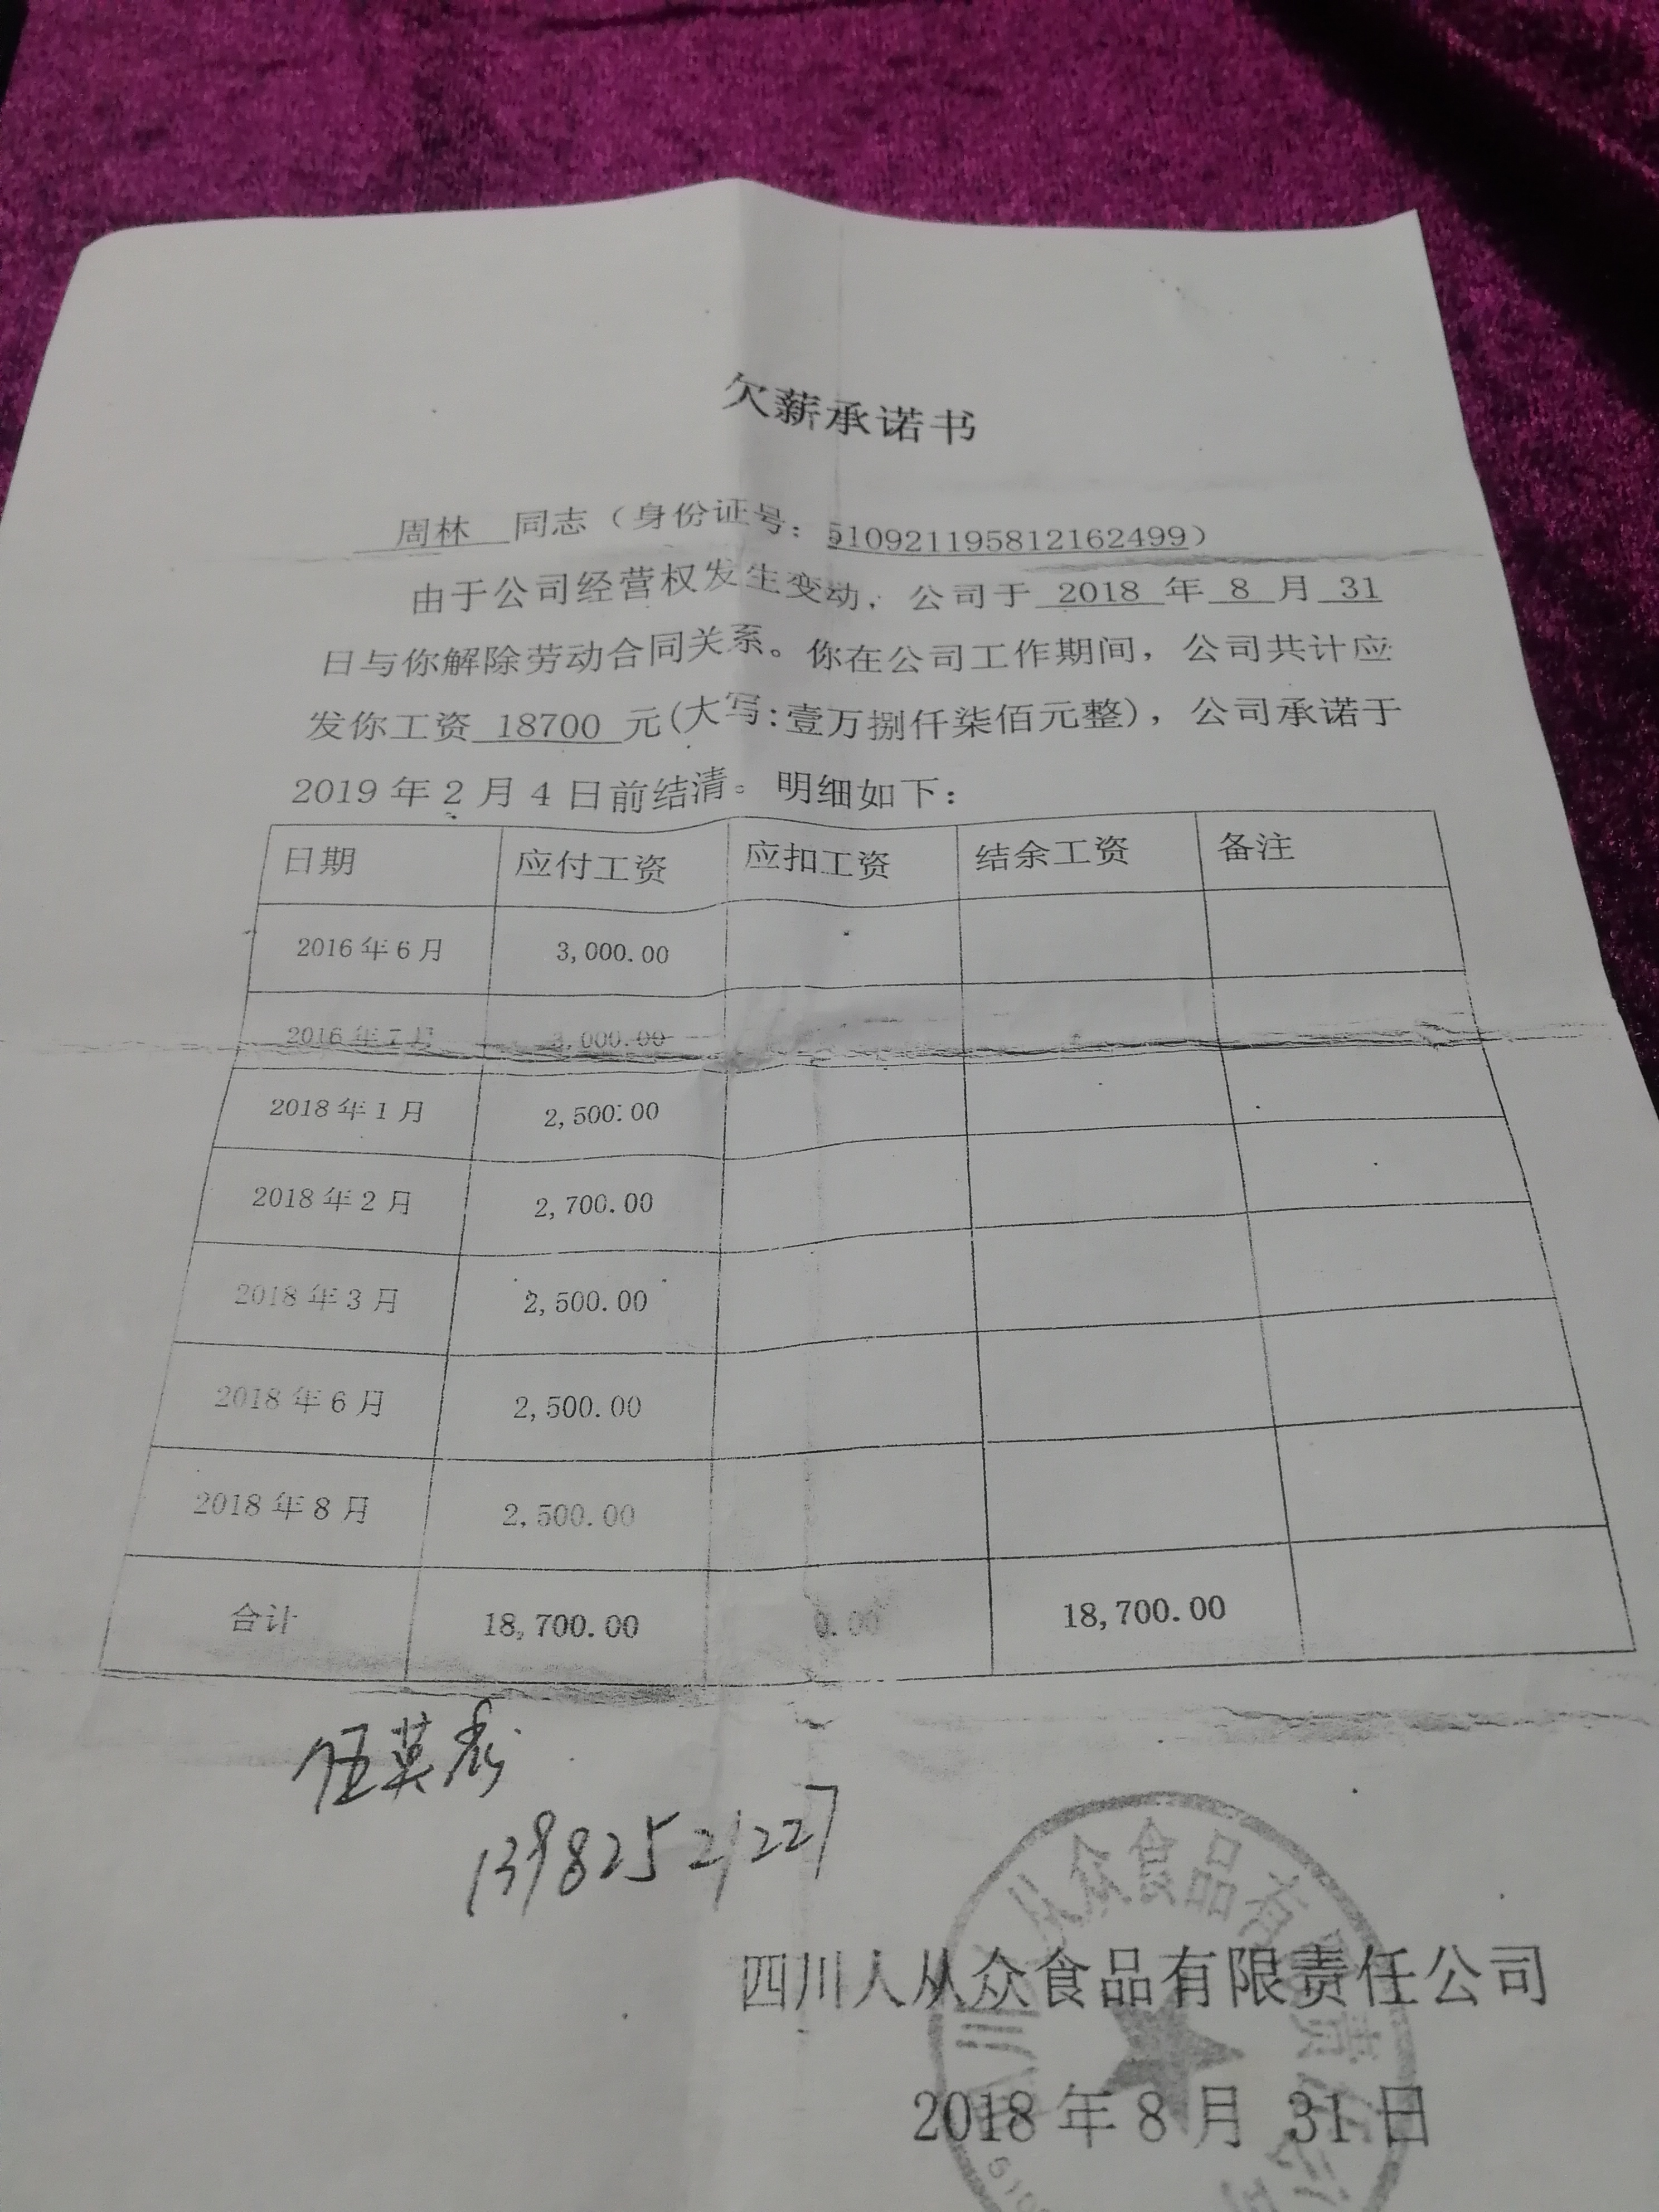 欠薪承诺书
周林 同志（身份证号：510921195812162499）
由于公司经营权发生变动，公司于 2018 年 8 月 31
日与你解除劳动合同关系。你在公司工作期间，公司共计应
发你工资 18700 元(大写:壹万捌仟柒佰元整)，公司承诺于
2019 年 2 月 4 日前结清。明细如下：
日期 应付工资 应扣工资 结余工资 备注
2016 年 6 月 3,000.00
2016 年 7 月 3,000.00
2018 年 1 月 2,500.00
2018 年 2 月 2,700.00
2018 年 3 月 2,500.00
2018 年 6 月 2,500.00
2018 年 8 月 2,500.00
合计 18,700.00 0.00 18,700.00
伍英
13982521227
四川人从众食品有限责任公司
2018 年 8 月 31 日